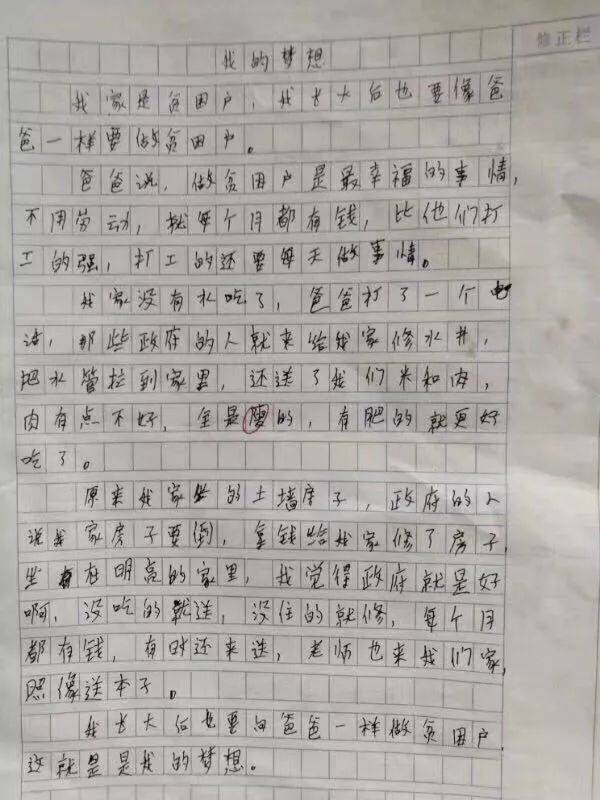 修正栏
我的梦想
我家是贫困户,我长大后也要像爸
爸一样要做贫困户。
爸爸说,做贫困户是最幸福的事情,
不用劳动,就每个月都有钱,比他们打
工的强,打工的还要每天做事情。
我家没有水吃了,爸爸打了一个电
话,那些政府的人就来给我家修水井,
把水管拉到家里,还送了我们米和肉,
肉有点不好,全是瘦的,有肥的就更好
吃了。
原来我家坐的土墙房子,政府的人
说我家房子要倒,拿钱给我家修了房子,
坐在明亮的家里,我觉得政府就是好
啊,没吃的就送,没住的就修,每个月
都有钱,有时还来送,老师也来我们家,
照像送本子。
我长大后也要向爸爸一样做贫困户,
这就是是我的梦想。